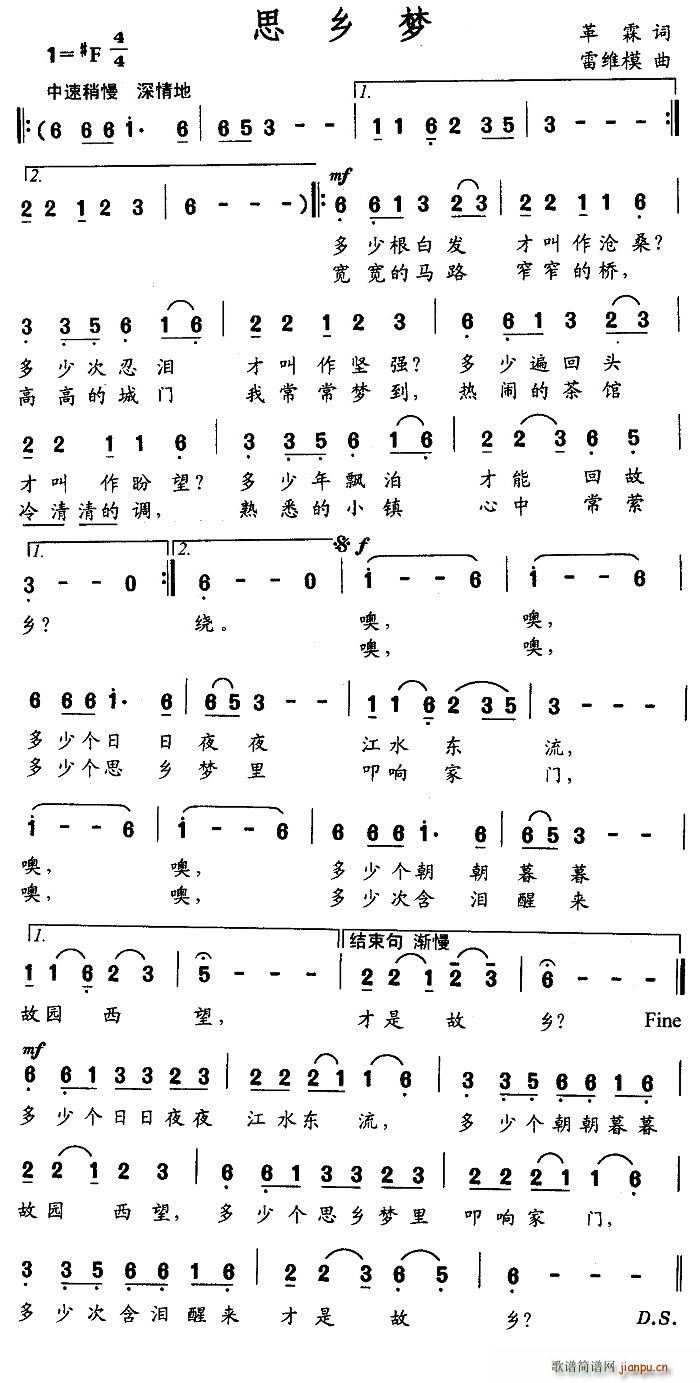 思乡梦
革霖词
1=#F 4/4
雷维模曲
中速稍慢 深情地
1.
(6 6 6 i· 6 | 6 5 3 - - | 1 1 6 2 3 5 | 3 - - - :|
2.
mf
2 2 1 2 3 | 6 - - - ) |: 6 6 1 3 2 3 | 2 2 1 1 6 |
多少根白发 才叫作沧桑?
宽宽的马路 窄窄的桥,
3 3 5 6 1 6 | 2 2 1 2 3 | 6 6 1 3 2 3 |
多少次忍泪 才叫作坚强? 多少遍回头
高高的城门 我常常梦到, 热闹的茶馆
2 2 1 1 6 | 3 3 5 6 1 6 | 2 2 3 6 5 |
才叫作盼望? 多少年飘泊 才能回故
冷清清的调, 熟悉的小镇 心中常萦
1. 2. f
3 - - 0 :| 6 - - 0 | i - - 6 | i - - 6 |
乡? 绕。 噢, 噢,
噢, 噢,
6 6 6 i· 6 | 6 5 3 - - | 1 1 6 2 3 5 | 3 - - - |
多少个日日夜夜 江水东流,
多少个思乡梦里 叩响家门,
i - - 6 | i - - 6 | 6 6 6 i· 6 | 6 5 3 - - |
噢, 噢, 多少个朝朝暮暮
噢, 噢, 多少次含泪醒来
1. 结束句 渐慢
1 1 6 2 3 | 5 - - - | 2 2 1 2 3 | 6 - - - ||
故园西望, 才是故乡? Fine
mf
6 6 1 3 3 2 3 | 2 2 2 1 1 6 | 3 3 5 6 6 1 6 |
多少个日日夜夜 江水东流, 多少个朝朝暮暮
2 2 1 2 3 | 6 6 1 3 3 2 3 | 2 2 2 1 1 6 |
故园西望, 多少个思乡梦里 叩响家门,
3 3 5 6 6 1 6 | 2 2 3 6 5 | 6 - - - ||
多少次含泪醒来 才是故乡? D.S.
歌谱简谱网 jianpu.cn